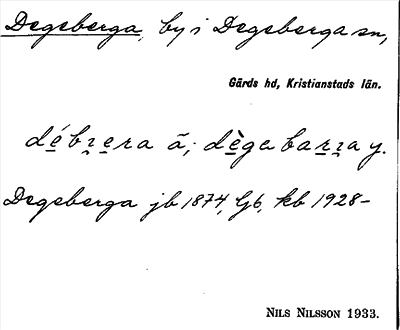 Degeberga, by i Degeberga sn,
Gärds hd, Kristianstads län.
débɪera ã; dègebarɪa y.
Degeberga jb 1874, Gb, kb 1928–
NILS NILSSON 1933.